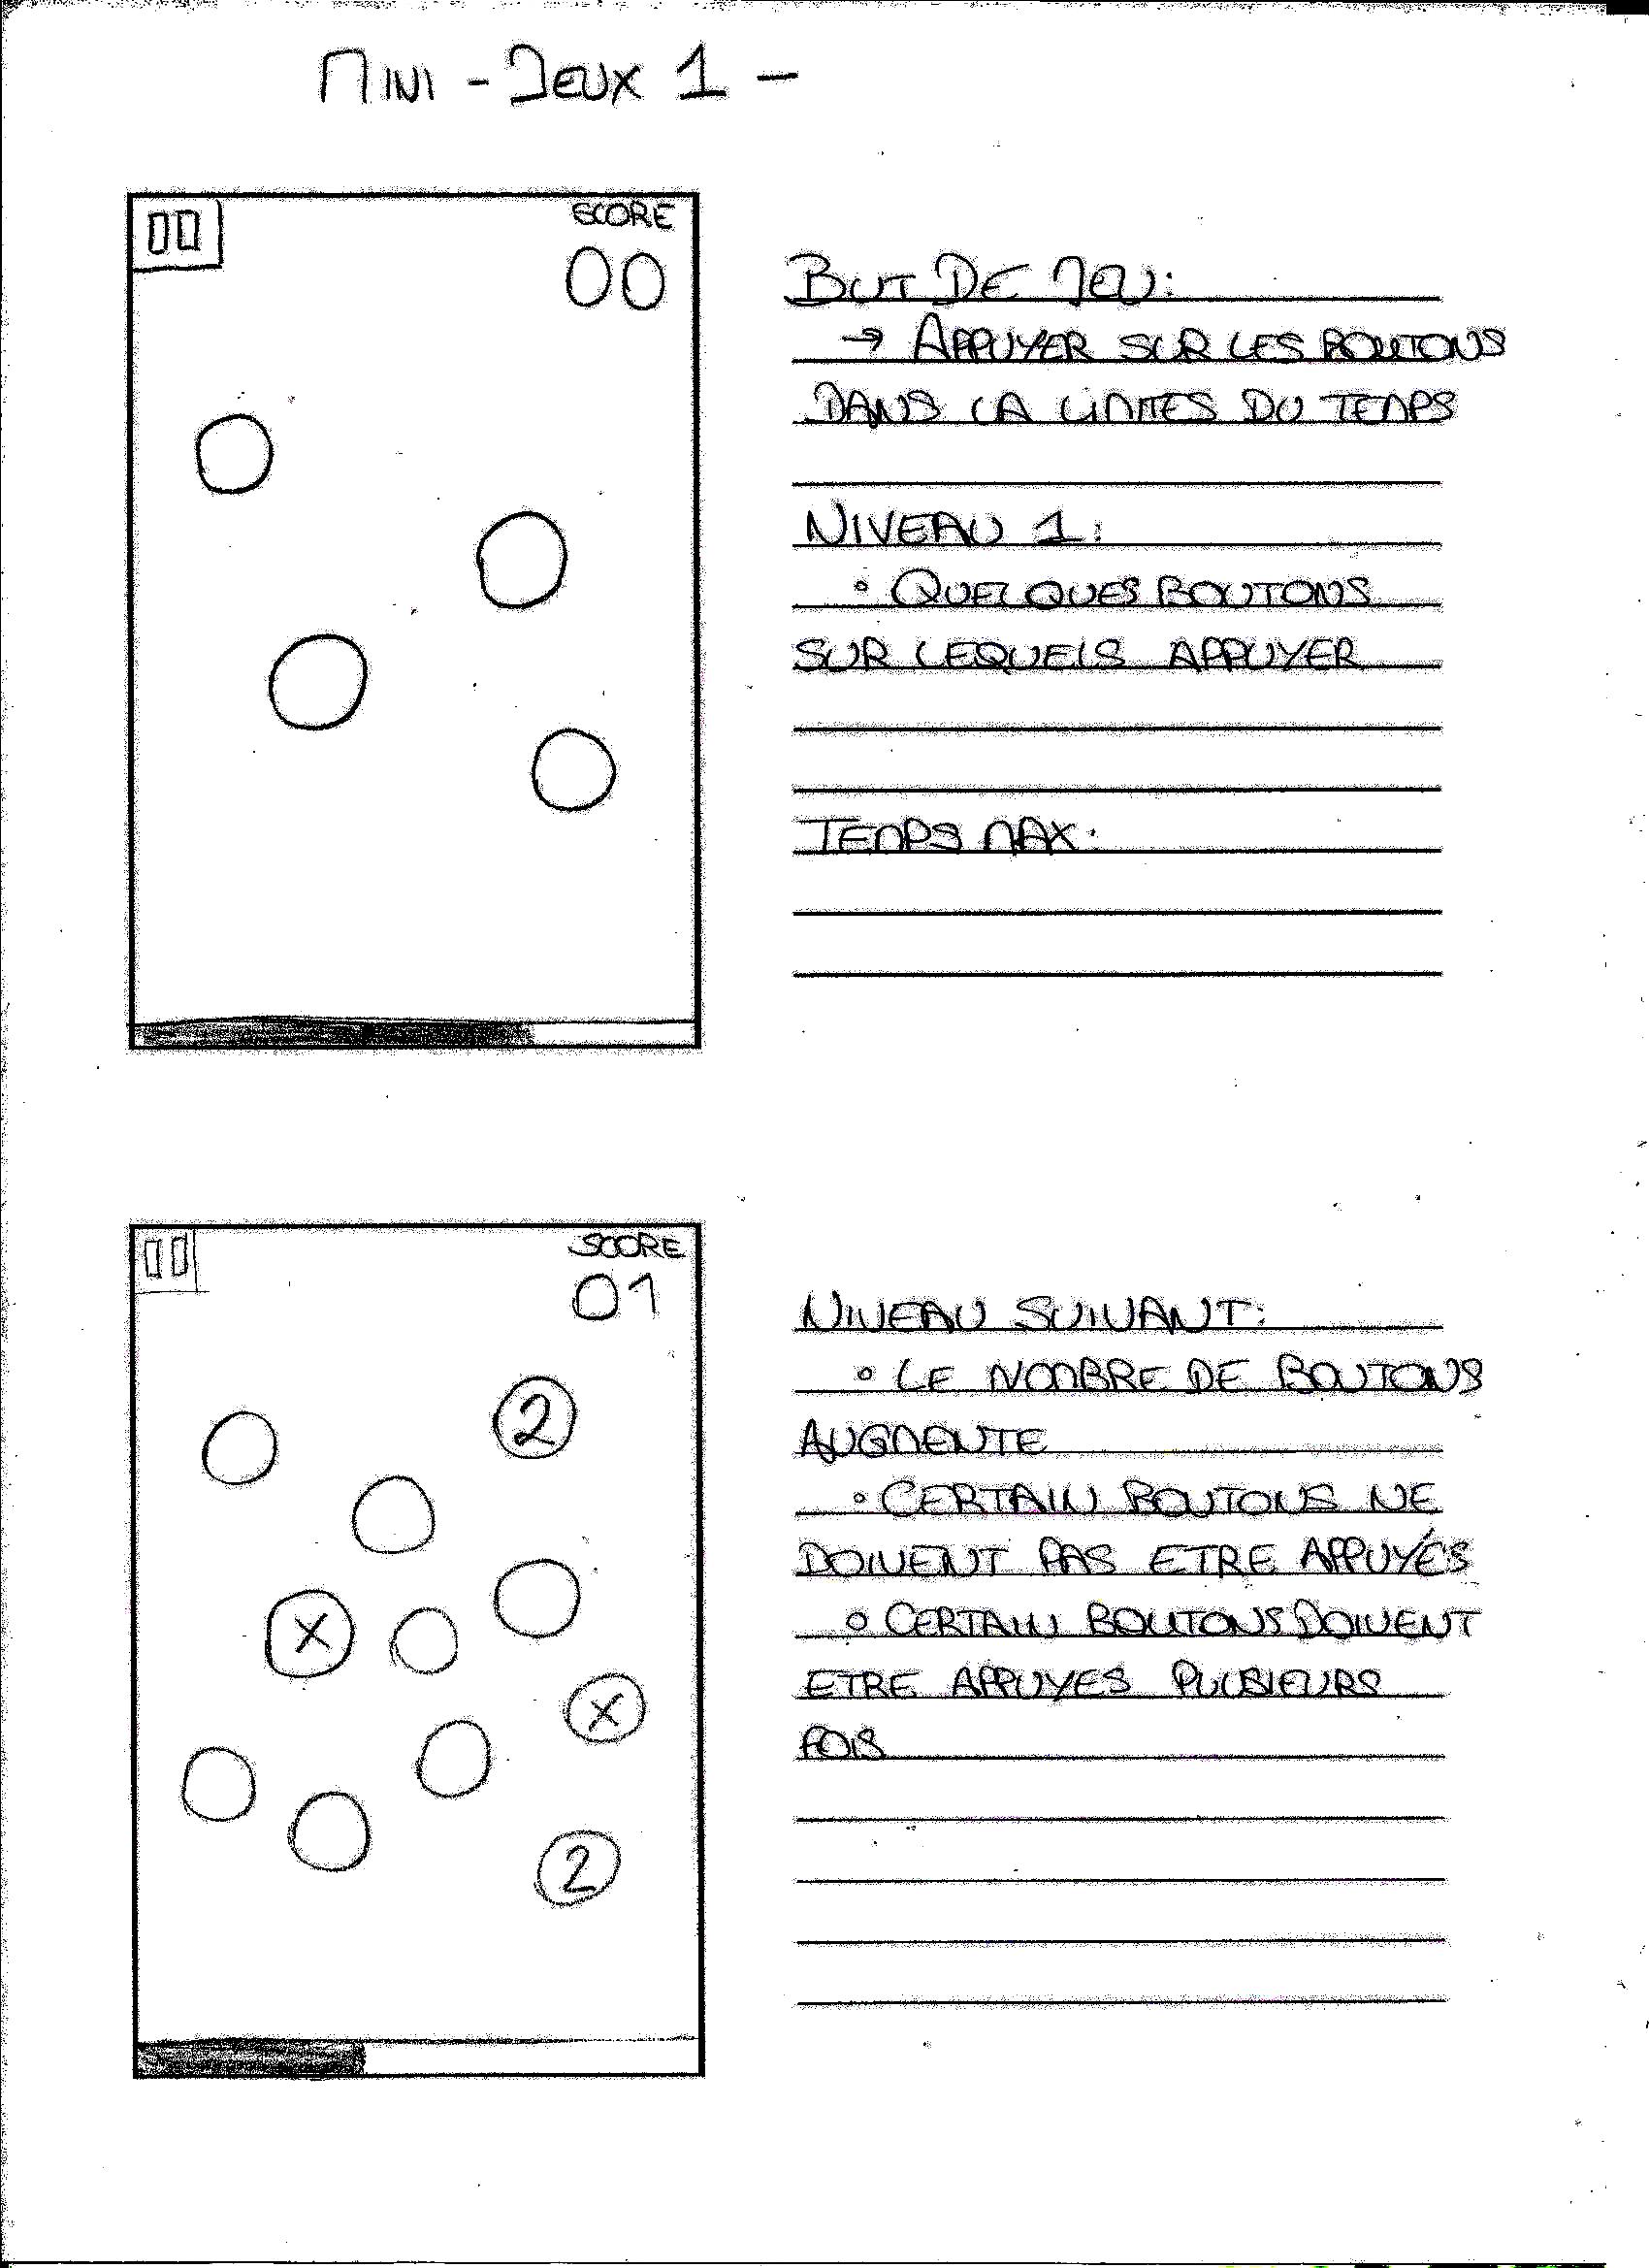 MINI - JEUX 1 -
SCORE
00
BUT DE JEU:
→ APPUYER SUR LES BOUTONS
DANS LA LIMITES DU TEMPS
NIVEAU 1:
• QUELQUES BOUTONS
SUR LEQUELS APPUYER
TEMPS MAX:
SCORE
01
2
X
X
2
NIVEAU SUIVANT:
• LE NOMBRE DE BOUTONS
AUGMENTE
• CERTAIN BOUTONS NE
DOIVENT PAS ETRE APPUYÉS
• CERTAIN BOUTONS DOIVENT
ETRE APPUYES PLUSIEURS
FOIS